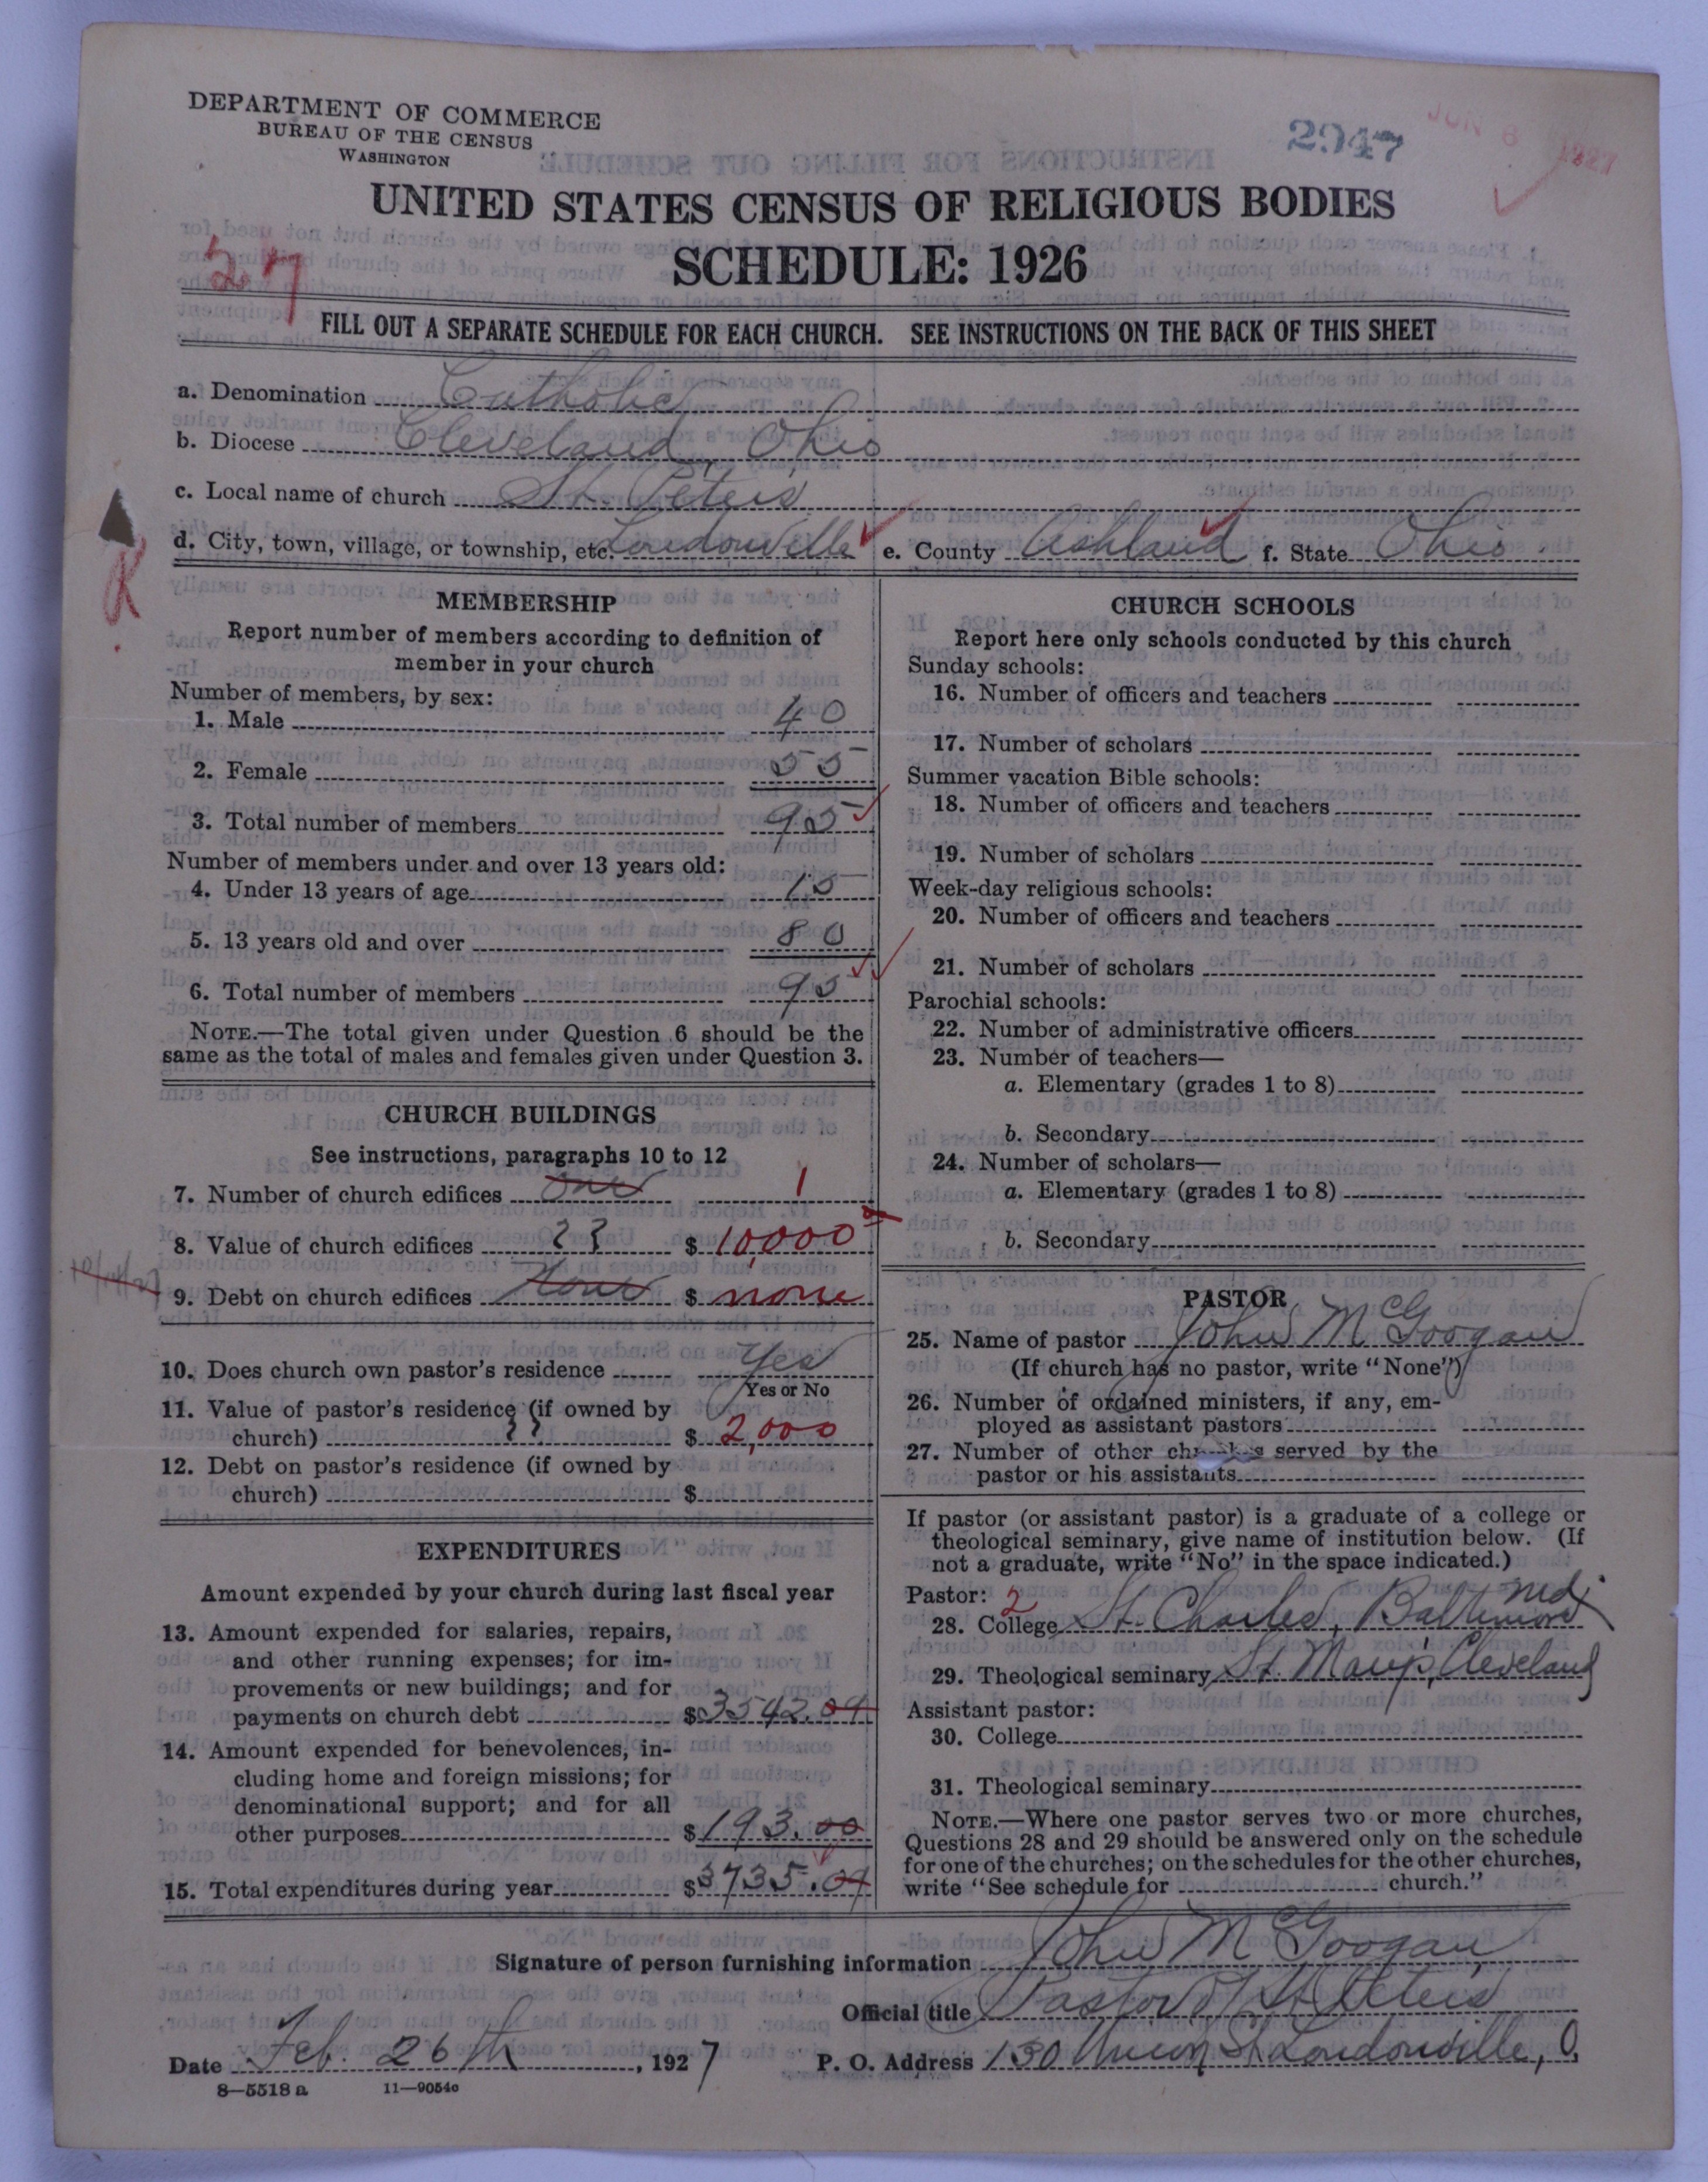 DEPARTMENT OF COMMERCE
BUREAU OF THE CENSUS
WASHINGTON
2947
JUN 6 1927
UNITED STATES CENSUS OF RELIGIOUS BODIES
SCHEDULE: 1926
27
FILL OUT A SEPARATE SCHEDULE FOR EACH CHURCH. SEE INSTRUCTIONS ON THE BACK OF THIS SHEET
a. Denomination Catholic
b. Diocese Cleveland, Ohio
c. Local name of church St. Peter's
d. City, town, village, or township, etc. Loudonville e. County Ashland f. State Ohio
R
MEMBERSHIP
Report number of members according to definition of
member in your church
Number of members, by sex:
1. Male 40
2. Female 55
3. Total number of members 95
Number of members under and over 13 years old:
4. Under 13 years of age 15
5. 13 years old and over 80
6. Total number of members 95
NOTE.—The total given under Question 6 should be the
same as the total of males and females given under Question 3.
CHURCH BUILDINGS
See instructions, paragraphs 10 to 12
7. Number of church edifices one 1
8. Value of church edifices ?? $ 10,000
9. Debt on church edifices None $ none
10. Does church own pastor's residence Yes
Yes or No
11. Value of pastor's residence (if owned by
church) ?? $ 2,000
12. Debt on pastor's residence (if owned by
church) $
EXPENDITURES
Amount expended by your church during last fiscal year
13. Amount expended for salaries, repairs,
and other running expenses; for im-
provements or new buildings; and for
payments on church debt $3542.09
14. Amount expended for benevolences, in-
cluding home and foreign missions; for
denominational support; and for all
other purposes $193.00
15. Total expenditures during year $3735.09
CHURCH SCHOOLS
Report here only schools conducted by this church
Sunday schools:
16. Number of officers and teachers
17. Number of scholars
Summer vacation Bible schools:
18. Number of officers and teachers
19. Number of scholars
Week-day religious schools:
20. Number of officers and teachers
21. Number of scholars
Parochial schools:
22. Number of administrative officers
23. Number of teachers—
a. Elementary (grades 1 to 8)
b. Secondary
24. Number of scholars—
a. Elementary (grades 1 to 8)
b. Secondary
PASTOR
25. Name of pastor John McGoogan
(If church has no pastor, write "None")
26. Number of ordained ministers, if any, em-
ployed as assistant pastors
27. Number of other churches served by the
pastor or his assistants
If pastor (or assistant pastor) is a graduate of a college or
theological seminary, give name of institution below. (If
not a graduate, write "No" in the space indicated.)
Pastor: 2
28. College St. Charles, Baltimore Md.
29. Theological seminary St. Mary's, Cleveland
Assistant pastor:
30. College
31. Theological seminary
NOTE.—Where one pastor serves two or more churches,
Questions 28 and 29 should be answered only on the schedule
for one of the churches; on the schedules for the other churches,
write "See schedule for church."
Signature of person furnishing information John McGoogan
Official title Pastor of St Peters
Date Feb. 26th, 1927 P. O. Address 130 Union St Loudonville, O.
8—5518 a 11—9054c